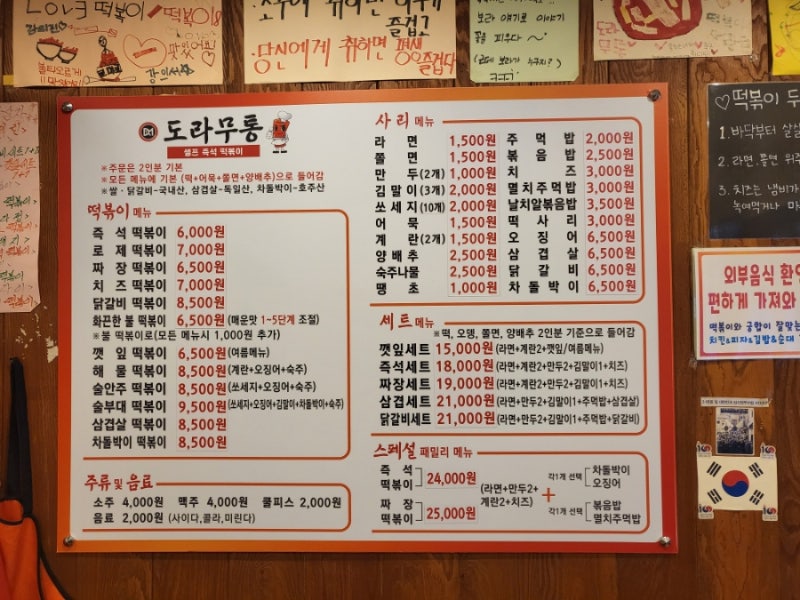 LOVE 떡볶이
맛있어요!
강의석
즐겁고
당신에게 취하면 평생
즐겁다
보라 얘기로 이야기
꽃을 피우다~
도라무통
셀프 즉석 떡볶이
※주문은 2인분 기본
※모든 메뉴에 기본 (떡+어묵+쫄면+양배추)으로 들어감
※쌀·닭갈비-국내산, 삼겹살-독일산, 차돌박이-호주산
떡볶이 메뉴
즉석 떡볶이 6,000원
로제 떡볶이 7,000원
짜장 떡볶이 6,500원
치즈 떡볶이 7,000원
닭갈비 떡볶이 8,500원
화끈한 불 떡볶이 6,500원(매운맛 1~5단계 조절)
※불 떡볶이로(모든 메뉴시 1,000원 추가)
깻잎 떡볶이 6,500원(여름메뉴)
해물 떡볶이 8,500원(계란+오징어+숙주)
술안주 떡볶이 8,500원(쏘세지+오징어+숙주)
술부대 떡볶이 9,500원(쏘세지+오징어+김말이+차돌박이+숙주)
삼겹살 떡볶이 8,500원
차돌박이 떡볶이 8,500원
주류 및 음료
소주 4,000원 맥주 4,000원 쿨피스 2,000원
음료 2,000원 (사이다,콜라,미린다)
사리 메뉴
라면 1,500원 주먹밥 2,000원
쫄면 1,500원 볶음밥 2,500원
만두(2개) 1,000원 치즈 3,000원
김말이(3개) 2,000원 멸치주먹밥 3,000원
쏘세지(10개) 2,000원 날치알볶음밥 3,500원
어묵 1,500원 떡사리 3,000원
계란(2개) 1,500원 오징어 6,500원
양배추 2,500원 삼겹살 6,500원
숙주나물 2,500원 닭갈비 6,500원
땡초 1,000원 차돌박이 6,500원
세트 메뉴
※떡, 오뎅, 쫄면, 양배추 2인분 기준으로 들어감
깻잎세트 15,000원(라면+계란2+깻잎/여름메뉴)
즉석세트 18,000원(라면+계란2+만두2+김말이1+치즈)
짜장세트 19,000원(라면+계란2+만두2+김말이1+치즈)
삼겹세트 21,000원(라면+만두2+김말이1+주먹밥+삼겹살)
닭갈비세트 21,000원(라면+만두2+김말이1+주먹밥+닭갈비)
스페셜 패밀리 메뉴
즉석 떡볶이 24,000원
짜장 떡볶이 25,000원
(라면+만두2+
계란2+치즈)
+
각1개 선택 차돌박이
오징어
각1개 선택 볶음밥
멸치주먹밥
♡떡볶이
1. 바닥부터
2. 라면, 쫄면
3. 치즈는 냄비가
녹여먹거나
외부음식 환영
편하게 가져와
떡볶이와 궁합이 잘맞는
치킨&피자&김밥&순대